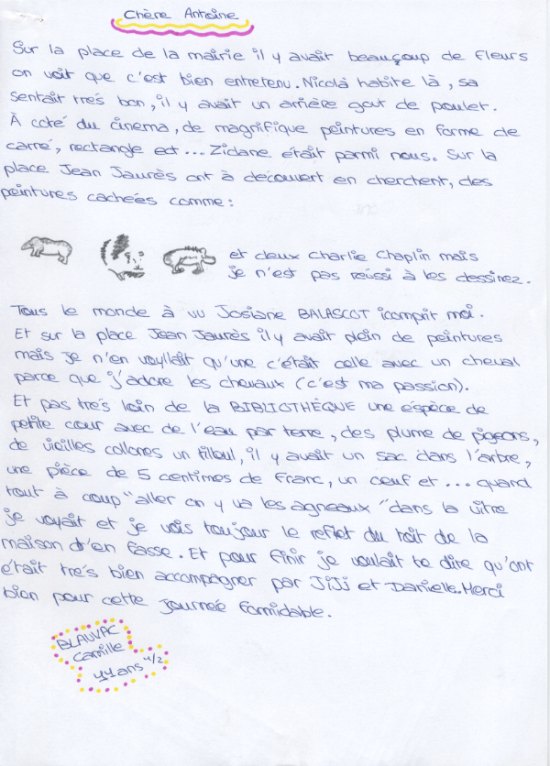 Chère Antoine
Sur la place de la mairie il y avait beauçoup de fleurs
on voit que c'est bien entretenu. Nicola habite là, sa
sentait très bon, il y avait un arrière gout de poulet.
À coté du cinema, de magnifique peintures en forme de
carré, rectangle ect... Zidane était parmi nous. Sur la
place Jean Jaurès ont à découvert en cherchent, des
peintures cachées comme :
et deux Charlie Chaplin mais
je n'est pas réussi à les dessinez.
Tous le monde à vu Josiane BALASCOT icomprit moi.
Et sur la place Jean Jaurès il y avait plein de peintures
mais je n'en voyllait qu'une c'était celle avec un cheval
parce que j'adore les chevaux (c'est ma passion).
Et pas très loin de la BIBLIOTHÉQUE une éspèce de
petite cour avec de l'eau par terre, des plume de pigeons,
de vieilles collones un tilleul, il y avait un sac dans l'arbre,
une pièce de 5 centimes de Franc, un oeuf et... quand
tout à coup "aller on y va les agneaux" dans la vitre
je voyait et je vois toujour le reflet du toit de la
maison d'en fasse. Et pour finir je voulait te dire qu'ont
était très bien accompagner par JiJi et Danielle. Merci
bien pour cette journée formidable.
BLAUVAC
Camille
11 ans 1/2